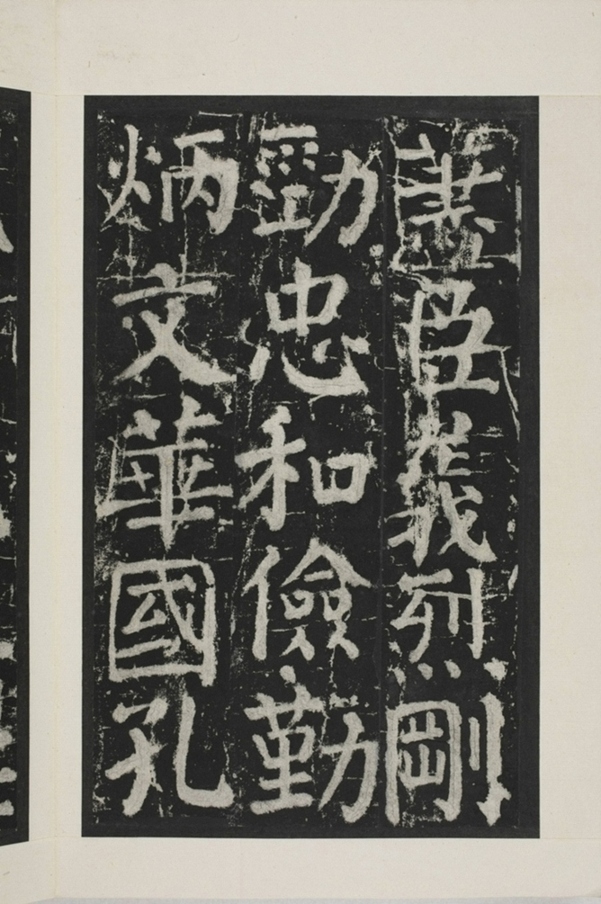 臣義烈剛
勁忠和儉勤
炳文華國孔